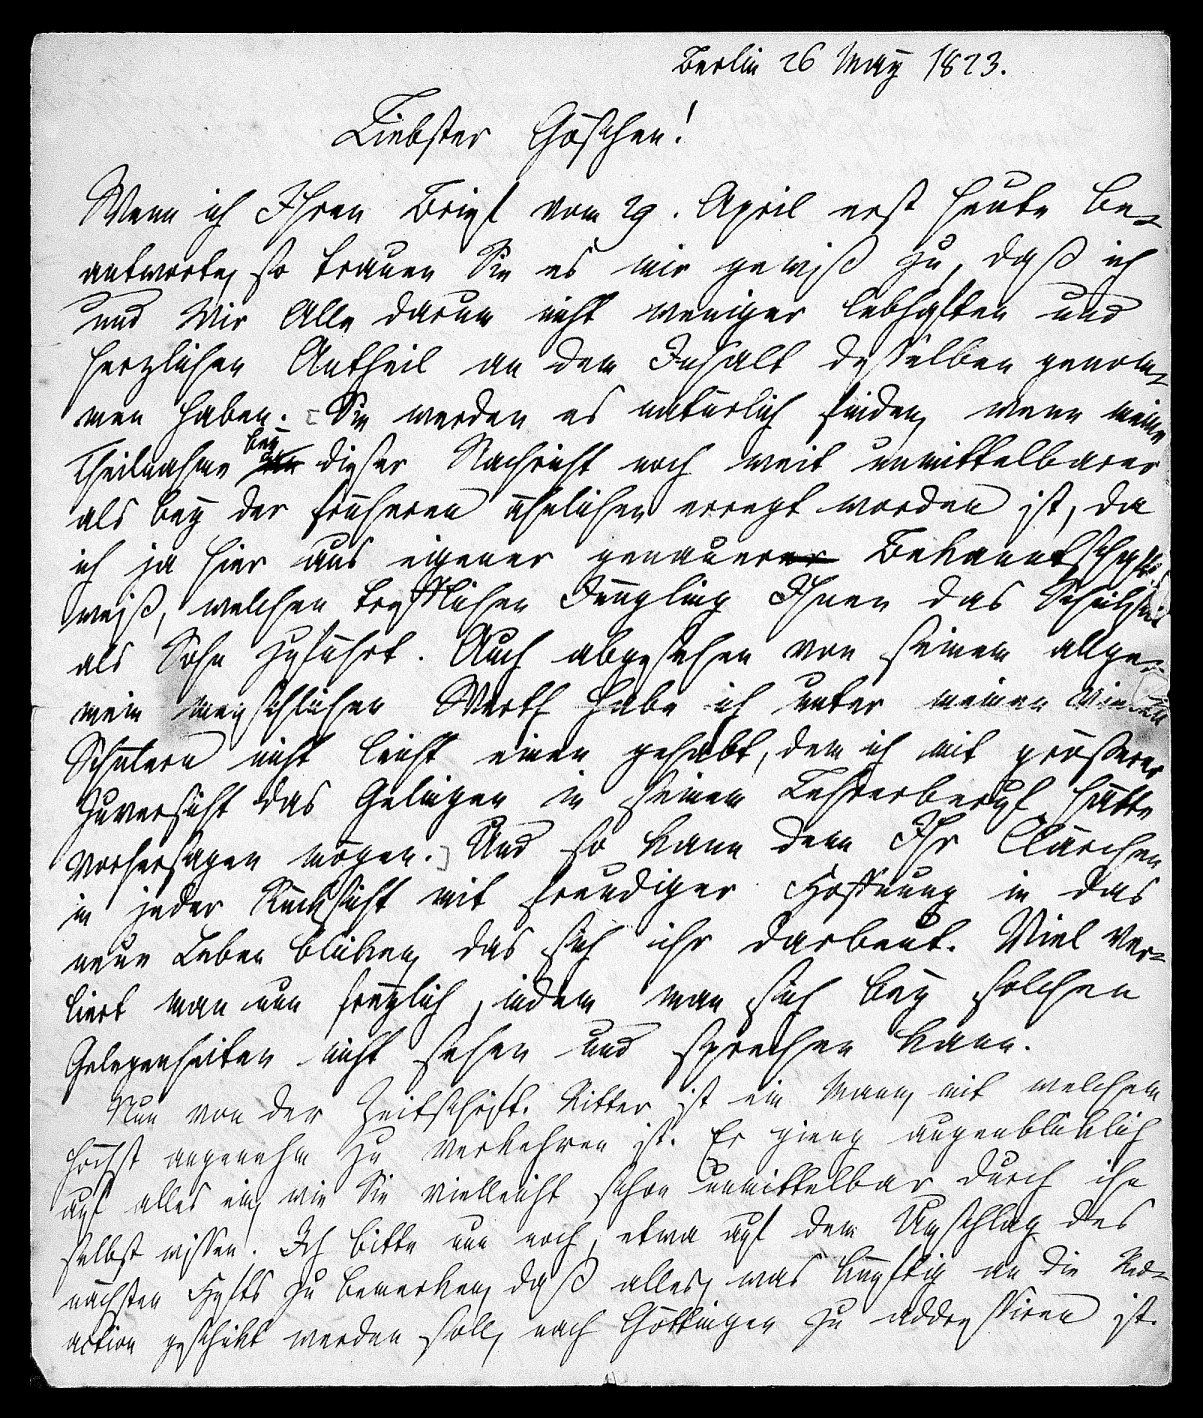 Berlin 26 May 1823.
Liebster Göschen!
Wenn ich Ihren Brief vom 29. April erst heute be-
antworte, so trauen Sie es mir gewiß zu, daß ich
und Wir Alle darum nicht weniger lebhaften und
herzlichen Antheil an dem Inhalt desselben genom-
men haben. [Sie werden es natürlich finden, wenn meine
Theilnahme bey dieser Nachricht noch weit unmittelbarer
als bey der früheren ähnlichen erregt worden ist, da
ich ja hier aus eigener genauerer Bekanntschaft
weiß, welchen trefflichen Jüngling Ihnen das Schicksal
als Sohn zuführt. Auch abgesehen von seinem allge-
mein menschlichen Werth habe ich unter meinen vielen
Schülern nicht leicht einen gehabt, dem ich mit größerer
Zuversicht das Gelingen in seinem Lehrerberuf hätte
vorhersagen mögen.] Und so kann denn Ihr Clärchen
in jeder Rücksicht mit freudiger Hoffnung in das
neue Leben blicken, das sich ihr darbeut. Viel ver-
liert man nun freylich, indem man sich bey solchen
Gelegenheiten nicht sehen und sprechen kann.
Nun von der Zeitschrift. Ritter ist ein Mann, mit welchem
höchst angenehm zu verkehren ist. Er gieng augenbliklich
auf alles ein, wie Sie vielleicht schon unmittelbar durch ihn
selbst wissen. Ich bitte nun noch, etwa auf dem Umschlag des
nächsten Hefts zu bemerken, daß alles, was künftig an die Red-
action geschikt werden soll, nach Göttingen zu addressiren ist.